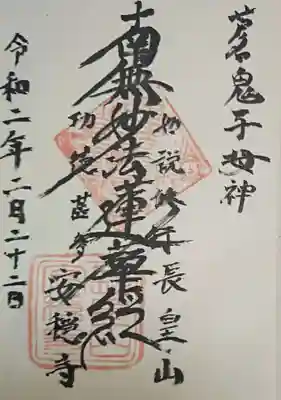 芸名鬼子母神
如説修行 長皇山
南無妙法蓮華経
功徳甚多 安穏寺
令和二年二月二十二日